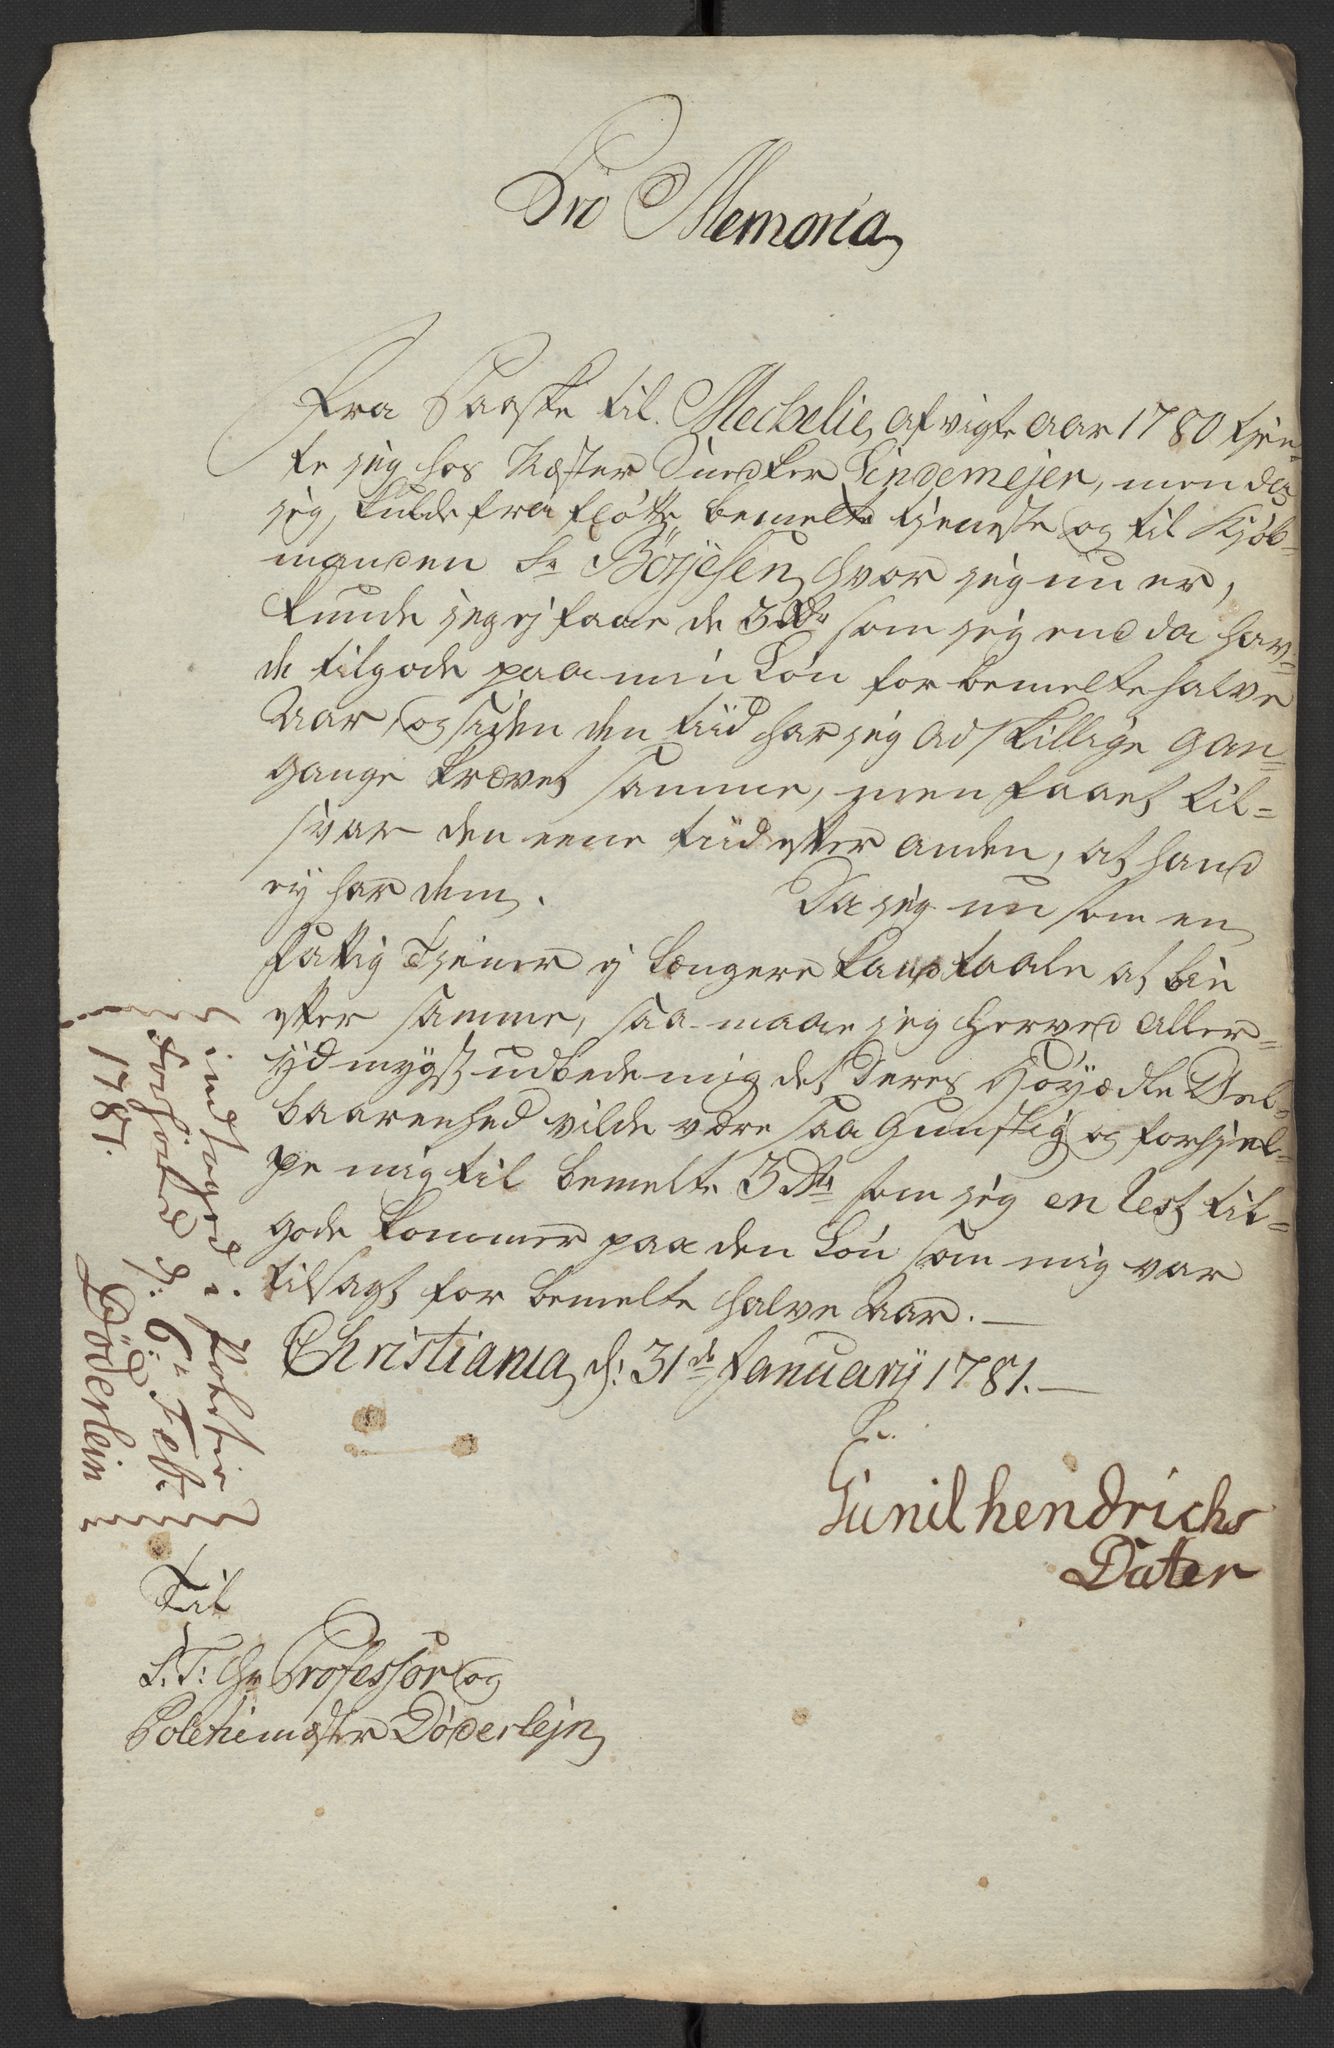 Pro Memoria
Fra Paaske til Mechelie afvigte aar 1780 tjen-
te jeg hos Mæster Snedker Lindemejer, men da
jeg skulde fra flötte bemelte tjeneste og til Kjöb-
manden Sr Börjesen, hvor jeg nu er,
kunde jeg ej faae de 3 Rdr som jeg end da hav-
de tilgode paa min Løn for bemelte halve
Aar, og siden den tiid har jeg adskillige gan-
gange krævet samme, men faaet til-
svar den eene tiid efter anden, at hand
ej har dem. Da jeg nu som en
fattig Tjener ej længere kand taale at bie
efter samme, saa maae jeg herved aller-
ydmygst udbede mig det Deres Höyædle Vel-
baarenhed vilde være saa Gunstig og forhjel-
pe mig til bemelte 3 Rdr som jeg en rest til-
gode kommer paa den Løn som mig var
tilsagt for bemelte halve Aar.
Christiania d: 31de Januarij 1781.
Gunil hendrichs
Dater
Til
S. T. Hr Professor og
Poletiemæster Döderlejn
indtaged i Politie
forhöred d: 6te Febr.
1781.
Döderlein